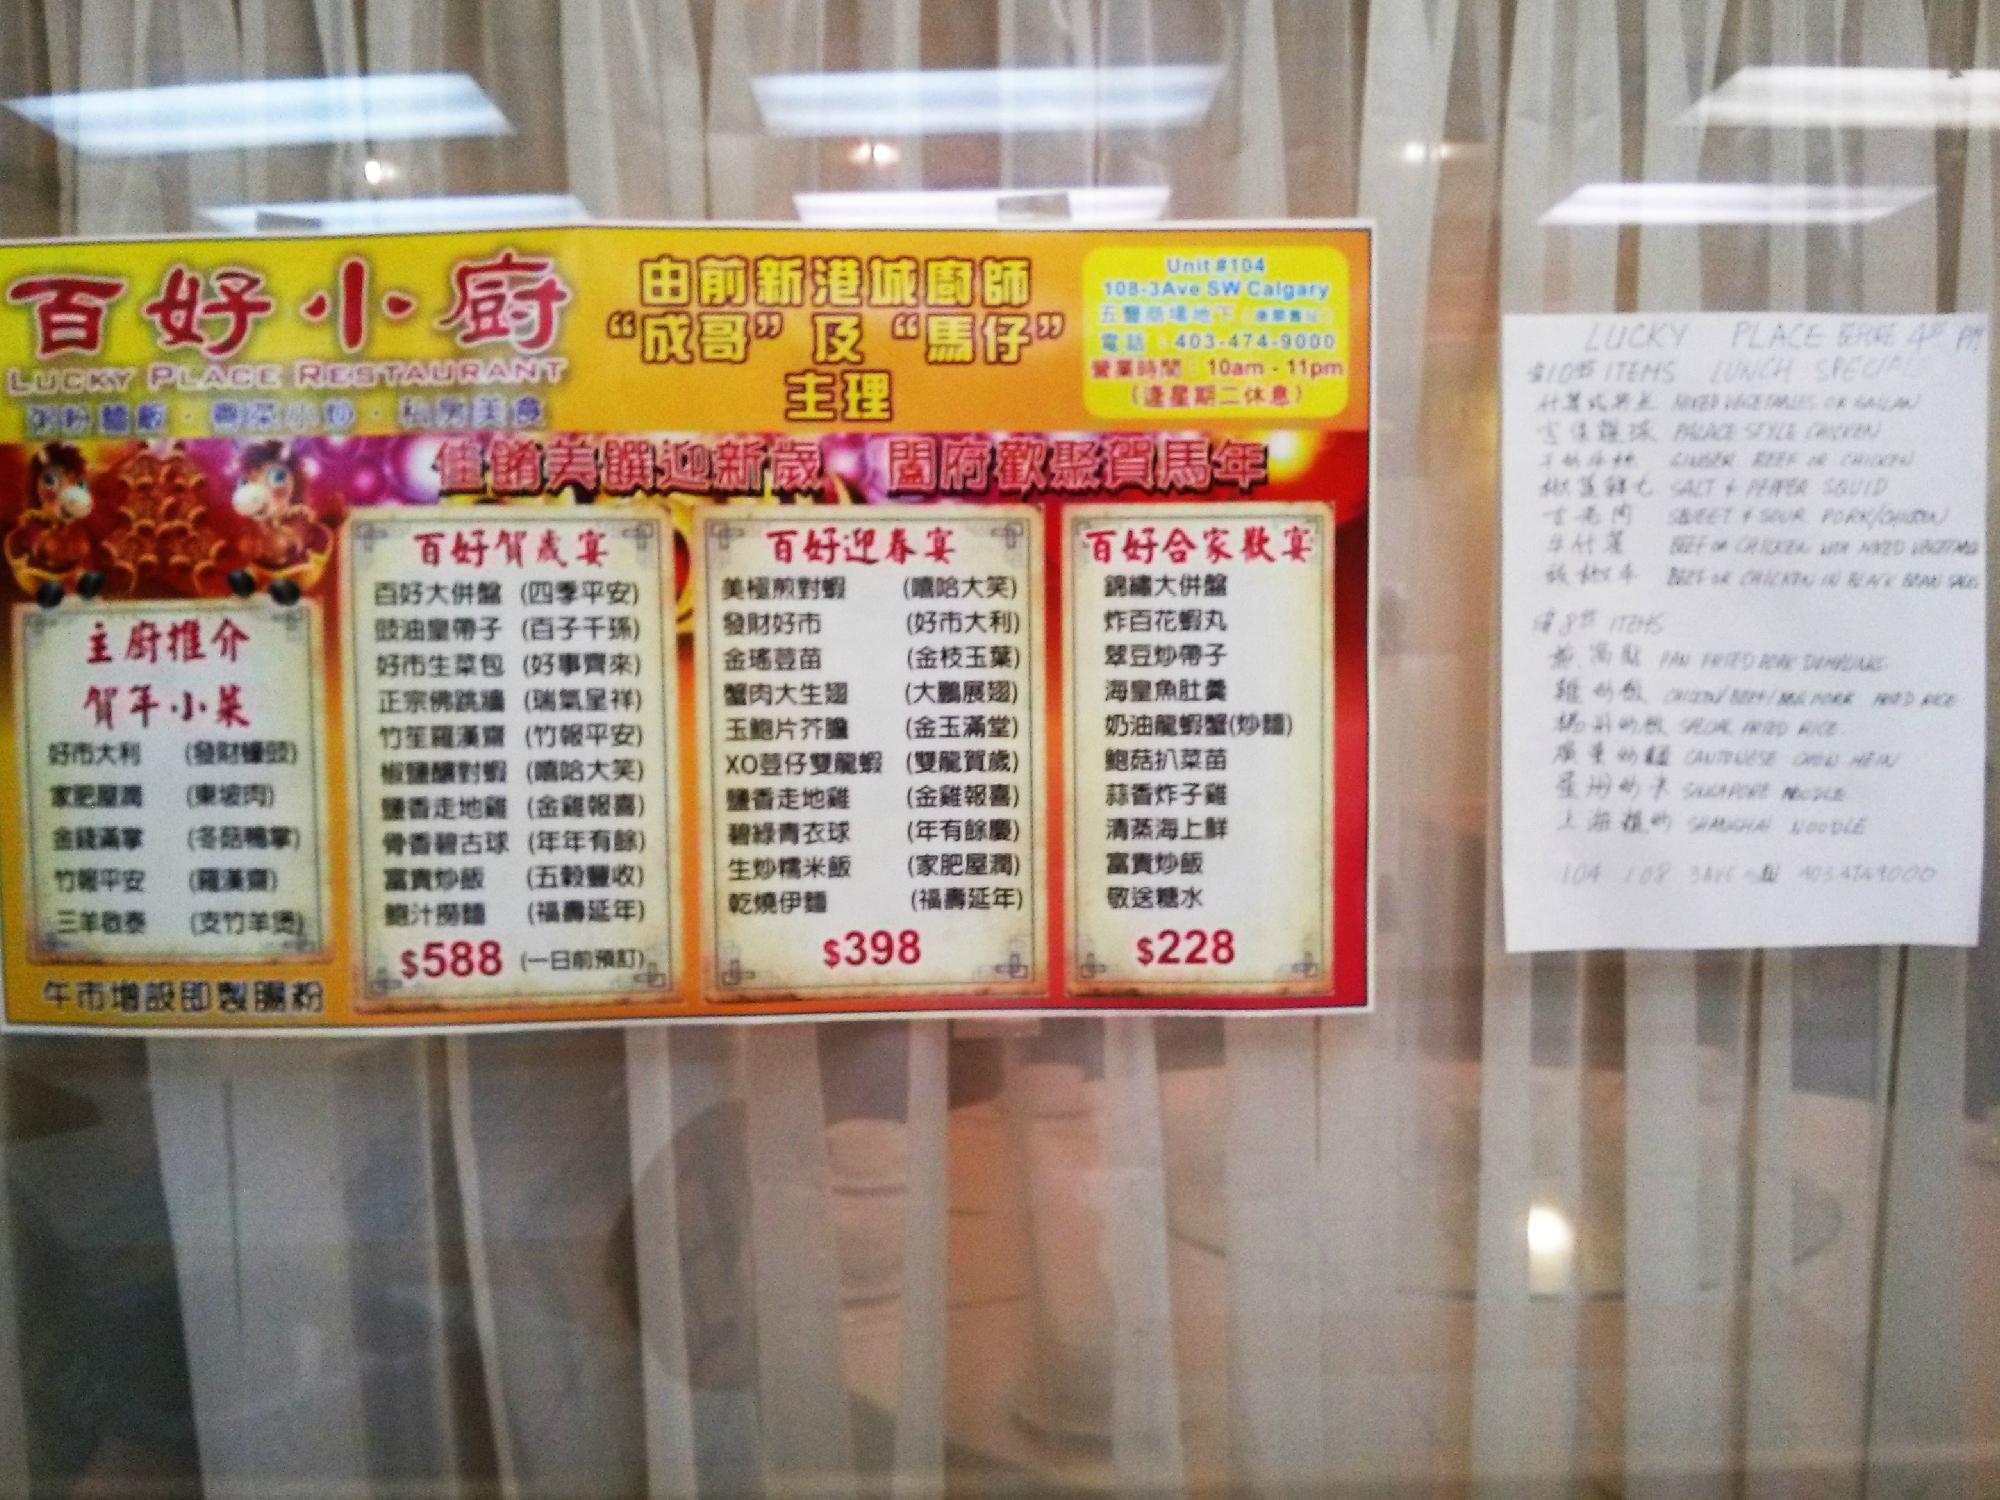 百好小廚
LUCKY PLACE RESTAURANT
粥粉麵飯·粵菜小炒·私房美食
由前新港城廚師
“成哥”及“馬仔”
主理
Unit #104
108-3Ave SW Calgary
五豐商場地下
電話：403-474-9000
營業時間：10am - 11pm
（逢星期二休息）
佳餚美饌迎新歲 闔府歡聚賀馬年
主廚推介
賀年小菜
好市大利 (發財蠔豉)
家肥屋潤 (東坡肉)
金錢滿掌 (冬菇鴨掌)
竹報平安 (羅漢齋)
三羊啟泰 (支竹羊煲)
午市增設即製腸粉
百好賀歲宴
百好大併盤 (四季平安)
豉油皇帶子 (百子千孫)
好市生菜包 (好事齊來)
正宗佛跳牆 (瑞氣呈祥)
竹笙羅漢齋 (竹報平安)
椒鹽釀對蝦 (嘻哈大笑)
鹽香走地雞 (金雞報喜)
骨香碧古球 (年年有餘)
富貴炒飯 (五穀豐收)
鮑汁撈麵 (福壽延年)
$588 (一日前預訂)
百好迎春宴
美極煎對蝦 (嘻哈大笑)
發財好市 (好市大利)
金瑤荳苗 (金枝玉葉)
蟹肉大生翅 (大鵬展翅)
玉鮑片芥膽 (金玉滿堂)
XO荳仔雙龍蝦 (雙龍賀歲)
鹽香走地雞 (金雞報喜)
碧綠青衣球 (年有餘慶)
生炒糯米飯 (家肥屋潤)
乾燒伊麵 (福壽延年)
$398
百好合家歡宴
錦繡大併盤
炸百花蝦丸
翠豆炒帶子
海皇魚肚羹
奶油龍蝦蟹(炒麵)
鮑菇扒菜苗
蒜香炸子雞
清蒸海上鮮
富貴炒飯
敬送糖水
$228
LUCKY PLACE BEFORE 4 PM
ITEMS LUNCH SPECIAL
MIXED VEGETABLES OR GAILAN
PALACE STYLE CHICKEN
GINGER BEEF OR CHICKEN
SALT & PEPPER SQUID
SWEET & SOUR PORK/CHICKEN
牛什菜 BEEF OR CHICKEN WITH MIXED VEGETABLE
BEEF OR CHICKEN IN BLACK BEAN SAUCE
ITEMS
PAN FRIED PORK DUMPLINGS
CHICKEN/BEEF/BBQ PORK FRIED RICE
FRIED RICE
CANTONESE CHOW MEIN
SINGAPORE NOODLE
SHANGHAI NOODLE
104 108 3AVE SW 403 474 9000